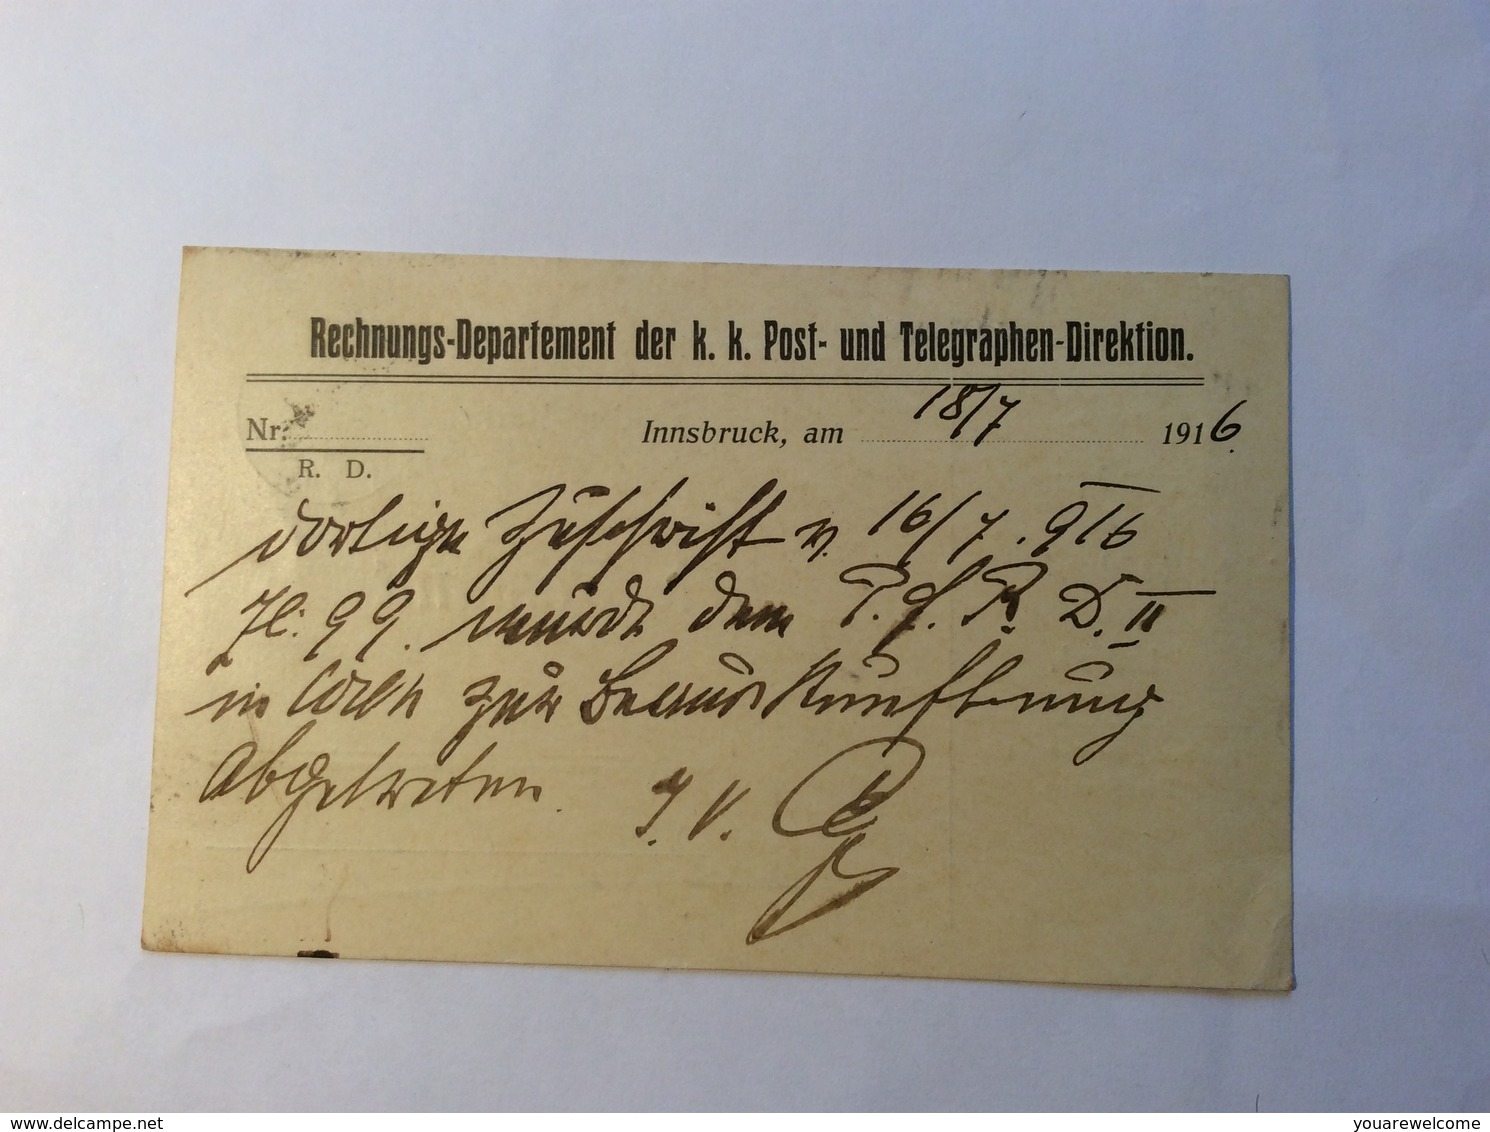 Rechnungs-Departement der k. k. Post- und Telegraphen-Direktion.
Nr.
R. D.
Innsbruck, am 18/7 1916.
dortige Zuschrift v. 16/7. 916
Zl. 99. wurde dem P. f. R. D. II
in Wien zur Beauskunftung
abgetreten. I. V.
delcampe.net
youarewelcome